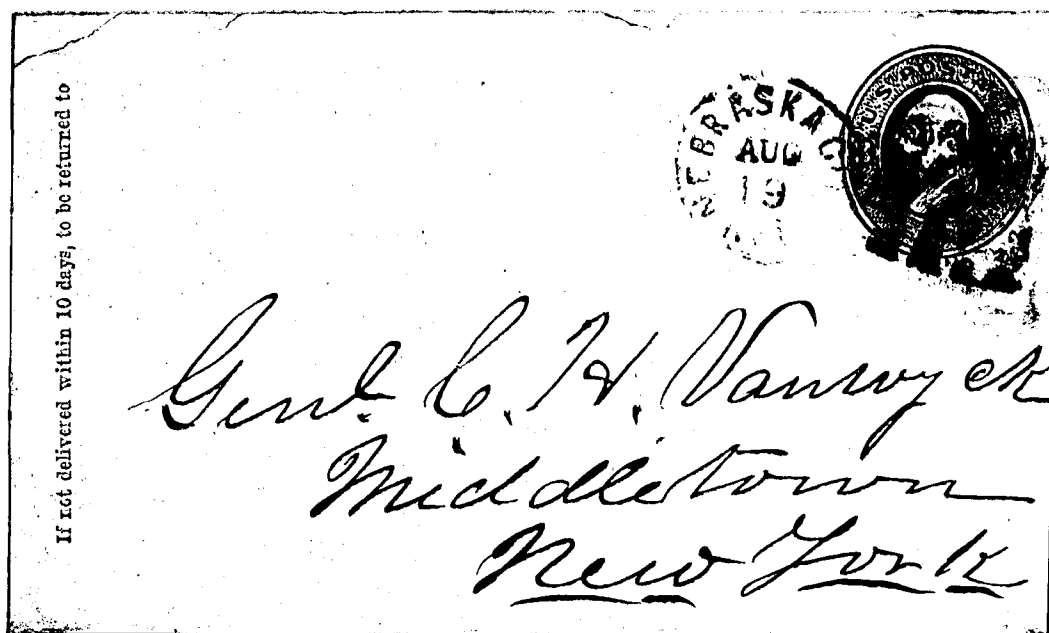 If not delivered within 10 days, to be returned to
NEBRASKA C
AUG
19
U.S. POSTAGE
Genl. C. H. Vanwyck
Middletown
New York